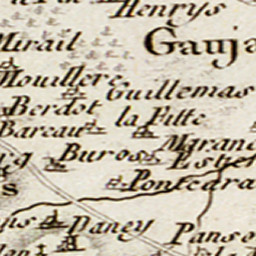 Henrys
Mirail
Gauja
Mouillere
Guillemas
Berdot
la Fitte
Bareau
Maranc
Buros
Pontcara
Daney
Panso